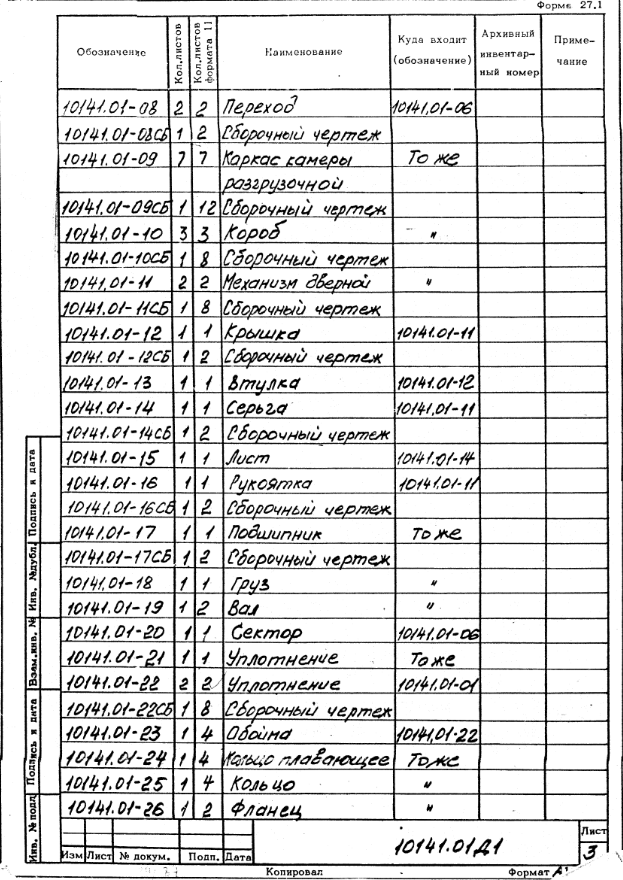 Форма 27.1
Обозначение Кол.листов Кол.листов формата 11 Наименование Куда входит (обозначение) Архивный инвентар- ный номер Приме- чание
10141.01-08 2 2 Переход 10141.01-06
10141.01-08СБ 1 2 Сборочный чертеж
10141.01-09 7 7 Каркас камеры То же
разгрузочной
10141.01-09СБ 1 12 Сборочный чертеж
10141.01-10 3 3 Короб "
10141.01-10СБ 1 8 Сборочный чертеж
10141.01-11 2 2 Механизм дверной "
10141.01-11СБ 1 8 Сборочный чертеж
10141.01-12 1 1 Крышка 10141.01-11
10141.01-12СБ 1 2 Сборочный чертеж
10141.01-13 1 1 Втулка 10141.01-12
10141.01-14 1 1 Серьга 10141.01-11
10141.01-14СБ 1 2 Сборочный чертеж
10141.01-15 1 1 Лист 10141.01-14
10141.01-16 1 1 Рукоятка 10141.01-11
10141.01-16СБ 1 2 Сборочный чертеж
10141.01-17 1 1 Подшипник То же
10141.01-17СБ 1 2 Сборочный чертеж
10141.01-18 1 1 Груз "
10141.01-19 1 2 Вал "
10141.01-20 1 1 Сектор 10141.01-06
10141.01-21 1 1 Уплотнение То же
10141.01-22 2 2 Уплотнение 10141.01-01
10141.01-22СБ 1 8 Сборочный чертеж
10141.01-23 1 4 Обойма 10141.01-22
10141.01-24 1 4 Кольцо плавающее То же
10141.01-25 1 4 Кольцо "
10141.01-26 1 2 Фланец "
Подпись и дата
Инв. №дубл.
Взам.инв. №
Подпись и дата
Инв. № подл
Изм Лист № докум. Подп. Дата
10141.01Д1
Лист
3
Копировал Формат